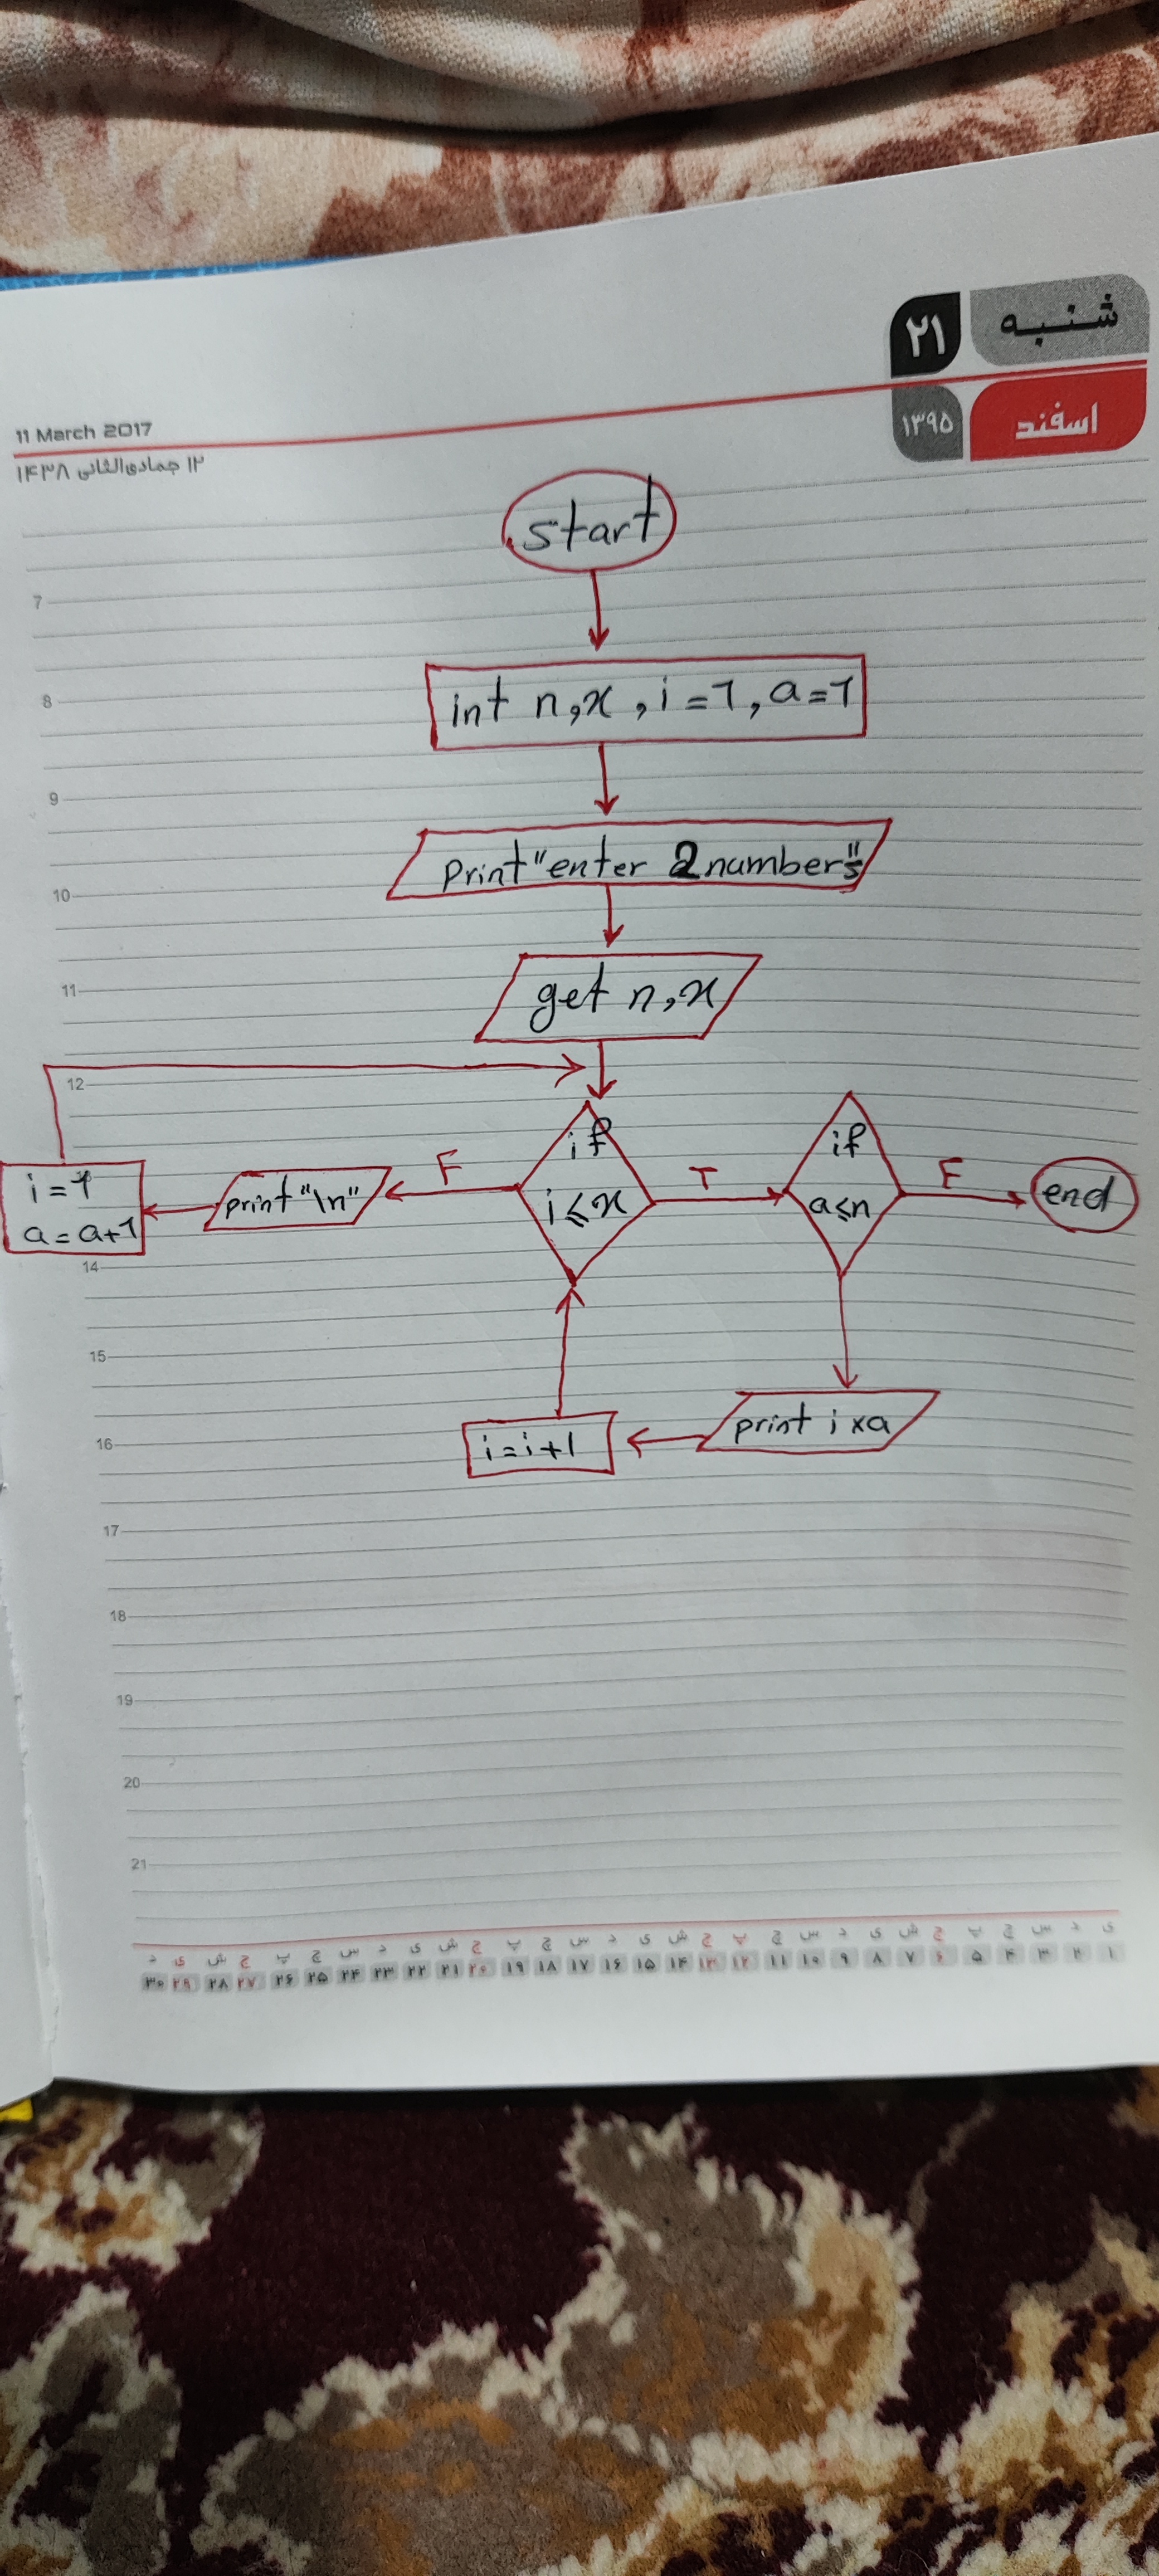 شنبه
۲۱
اسفند
۱۳۹۵
11 March 2017
۱۲ جمادی‌الثانی ۱۴۳۸
start
7
int n,x,i=1,a=1
8
9
print"enter 2numbers"
10
get n,x
11
12
if
i≤x
T
if
a≤n
F
end
F
print"\n"
i=1
a=a+1
14
15
print i×a
i=i+1
16
17
18
19
20
21
ی د س چ پ ج ش ی د س چ پ ج ش ی د س چ پ ج ش ی د س چ پ ج ش ی د
۱ ۲ ۳ ۴ ۵ ۶ ۷ ۸ ۹ ۱۰ ۱۱ ۱۲ ۱۳ ۱۴ ۱۵ ۱۶ ۱۷ ۱۸ ۱۹ ۲۰ ۲۱ ۲۲ ۲۳ ۲۴ ۲۵ ۲۶ ۲۷ ۲۸ ۲۹ ۳۰